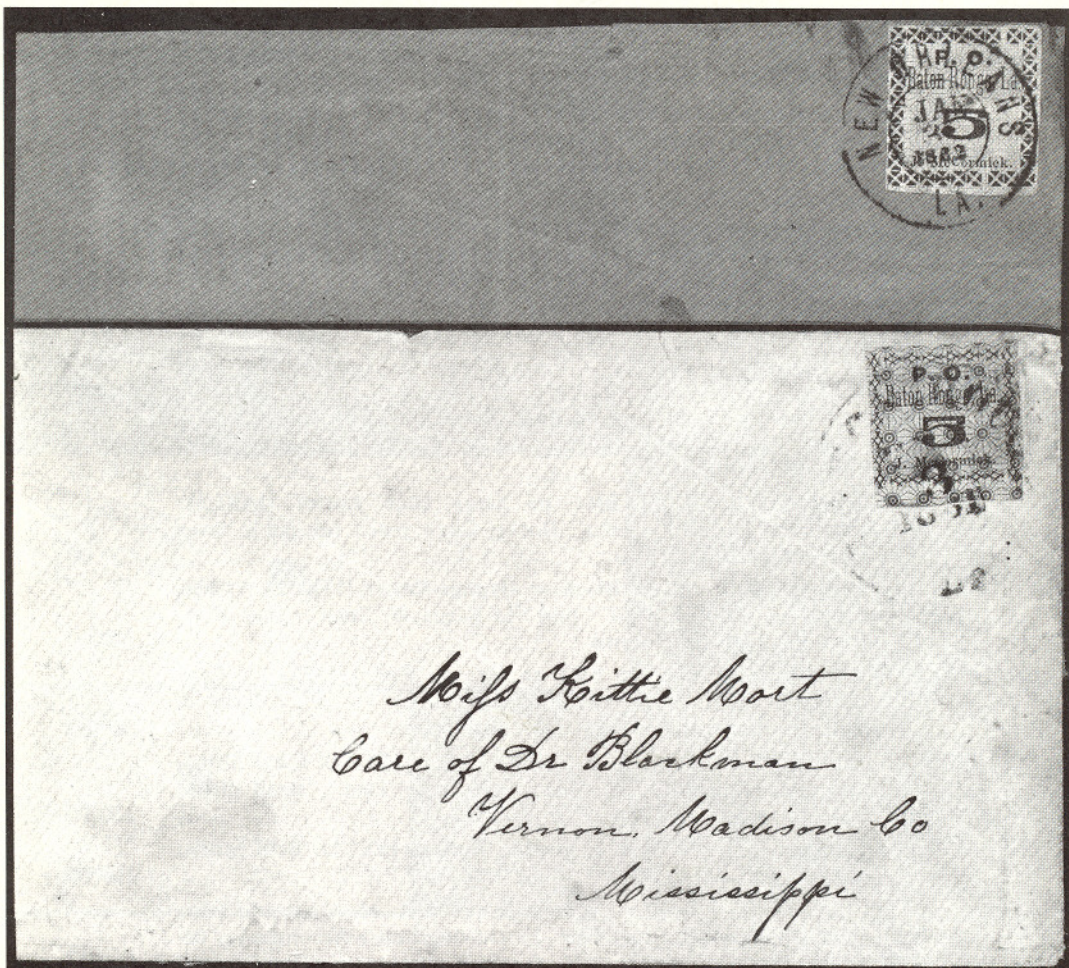 NEW ORLEANS
P. O.
Baton Rouge, La.
JAN
5
1862
J. McCormick.
LA.
P. O.
Baton Rouge, La.
5
J. McCormick.
La
Miss Kittie Mort
Care of Dr Blackman
Vernon, Madison Co
Mississippi